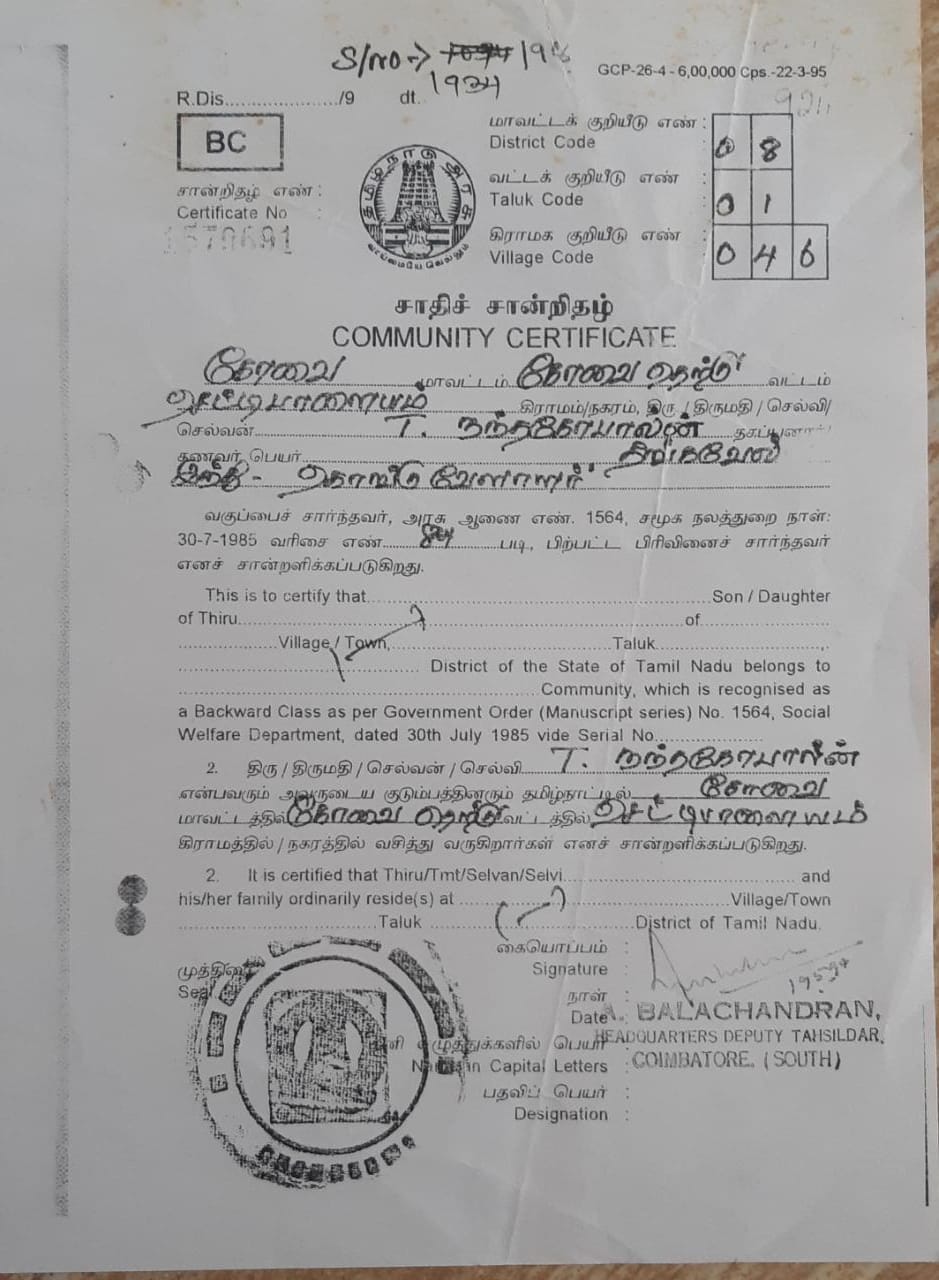 S/No → 1934
GCP-26-4 - 6,00,000 Cps.-22-3-95
R.Dis...................../9 dt.
BC
மாவட்டக் குறியீடு எண் :
District Code 08
சான்றிதழ் எண் :
Certificate No :
1570691
தமிழ்நாடு அரசு
வாய்மையே வெல்லும்
வட்டக் குறியீடு எண் :
Taluk Code 01
கிராமக குறியீடு எண் :
Village Code 046
சாதிச் சான்றிதழ்
COMMUNITY CERTIFICATE
கோவை மாவட்டம் கோவை தெற்கு வட்டம்
செட்டிபாளையம் கிராமம்/நகரம், திரு / திருமதி / செல்வி/
செல்வன் T. நந்தகோபாலின் தகப்பனார்/
கணவர் பெயர்
இந்து - கொங்கு வேளாளர்
வகுப்பைச் சார்ந்தவர், அரசு ஆணை எண். 1564, சமூக நலத்துறை நாள்:
30-7-1985 வரிசை எண் படி, பிற்பட்ட பிரிவினைச் சார்ந்தவர்
எனச் சான்றளிக்கப்படுகிறது.
This is to certify that.......................Son / Daughter
of Thiru.......................of.......................
.......................Village / Town,.......................Taluk.......................
....................... District of the State of Tamil Nadu belongs to
.......................Community, which is recognised as
a Backward Class as per Government Order (Manuscript series) No. 1564, Social
Welfare Department, dated 30th July 1985 vide Serial No.......................
2. திரு / திருமதி / செல்வன் / செல்வி T. நந்தகோபாலின்
என்பவரும் அவருடைய குடும்பத்தினரும் தமிழ்நாட்டில் கோவை
மாவட்டத்தில் கோவை தெற்கு வட்டத்தில் செட்டிபாளையம்
கிராமத்தில் / நகரத்தில் வசித்து வருகிறார்கள் எனச் சான்றளிக்கப்படுகிறது.
2. It is certified that Thiru/Tmt/Selvan/Selvi....................... and
his/her family ordinarily reside(s) at .......................Village/Town
.......................Taluk .......................District of Tamil Nadu.
கையொப்பம் :
Signature :
முத்திரை
Seal
நாள் :
Date
A. BALACHANDRAN,
HEADQUARTERS DEPUTY TAHSILDAR,
COIMBATORE. (SOUTH)
எழுத்துக்களில் பெயர்
Name in Capital Letters :
பதவிப் பெயர் :
Designation :